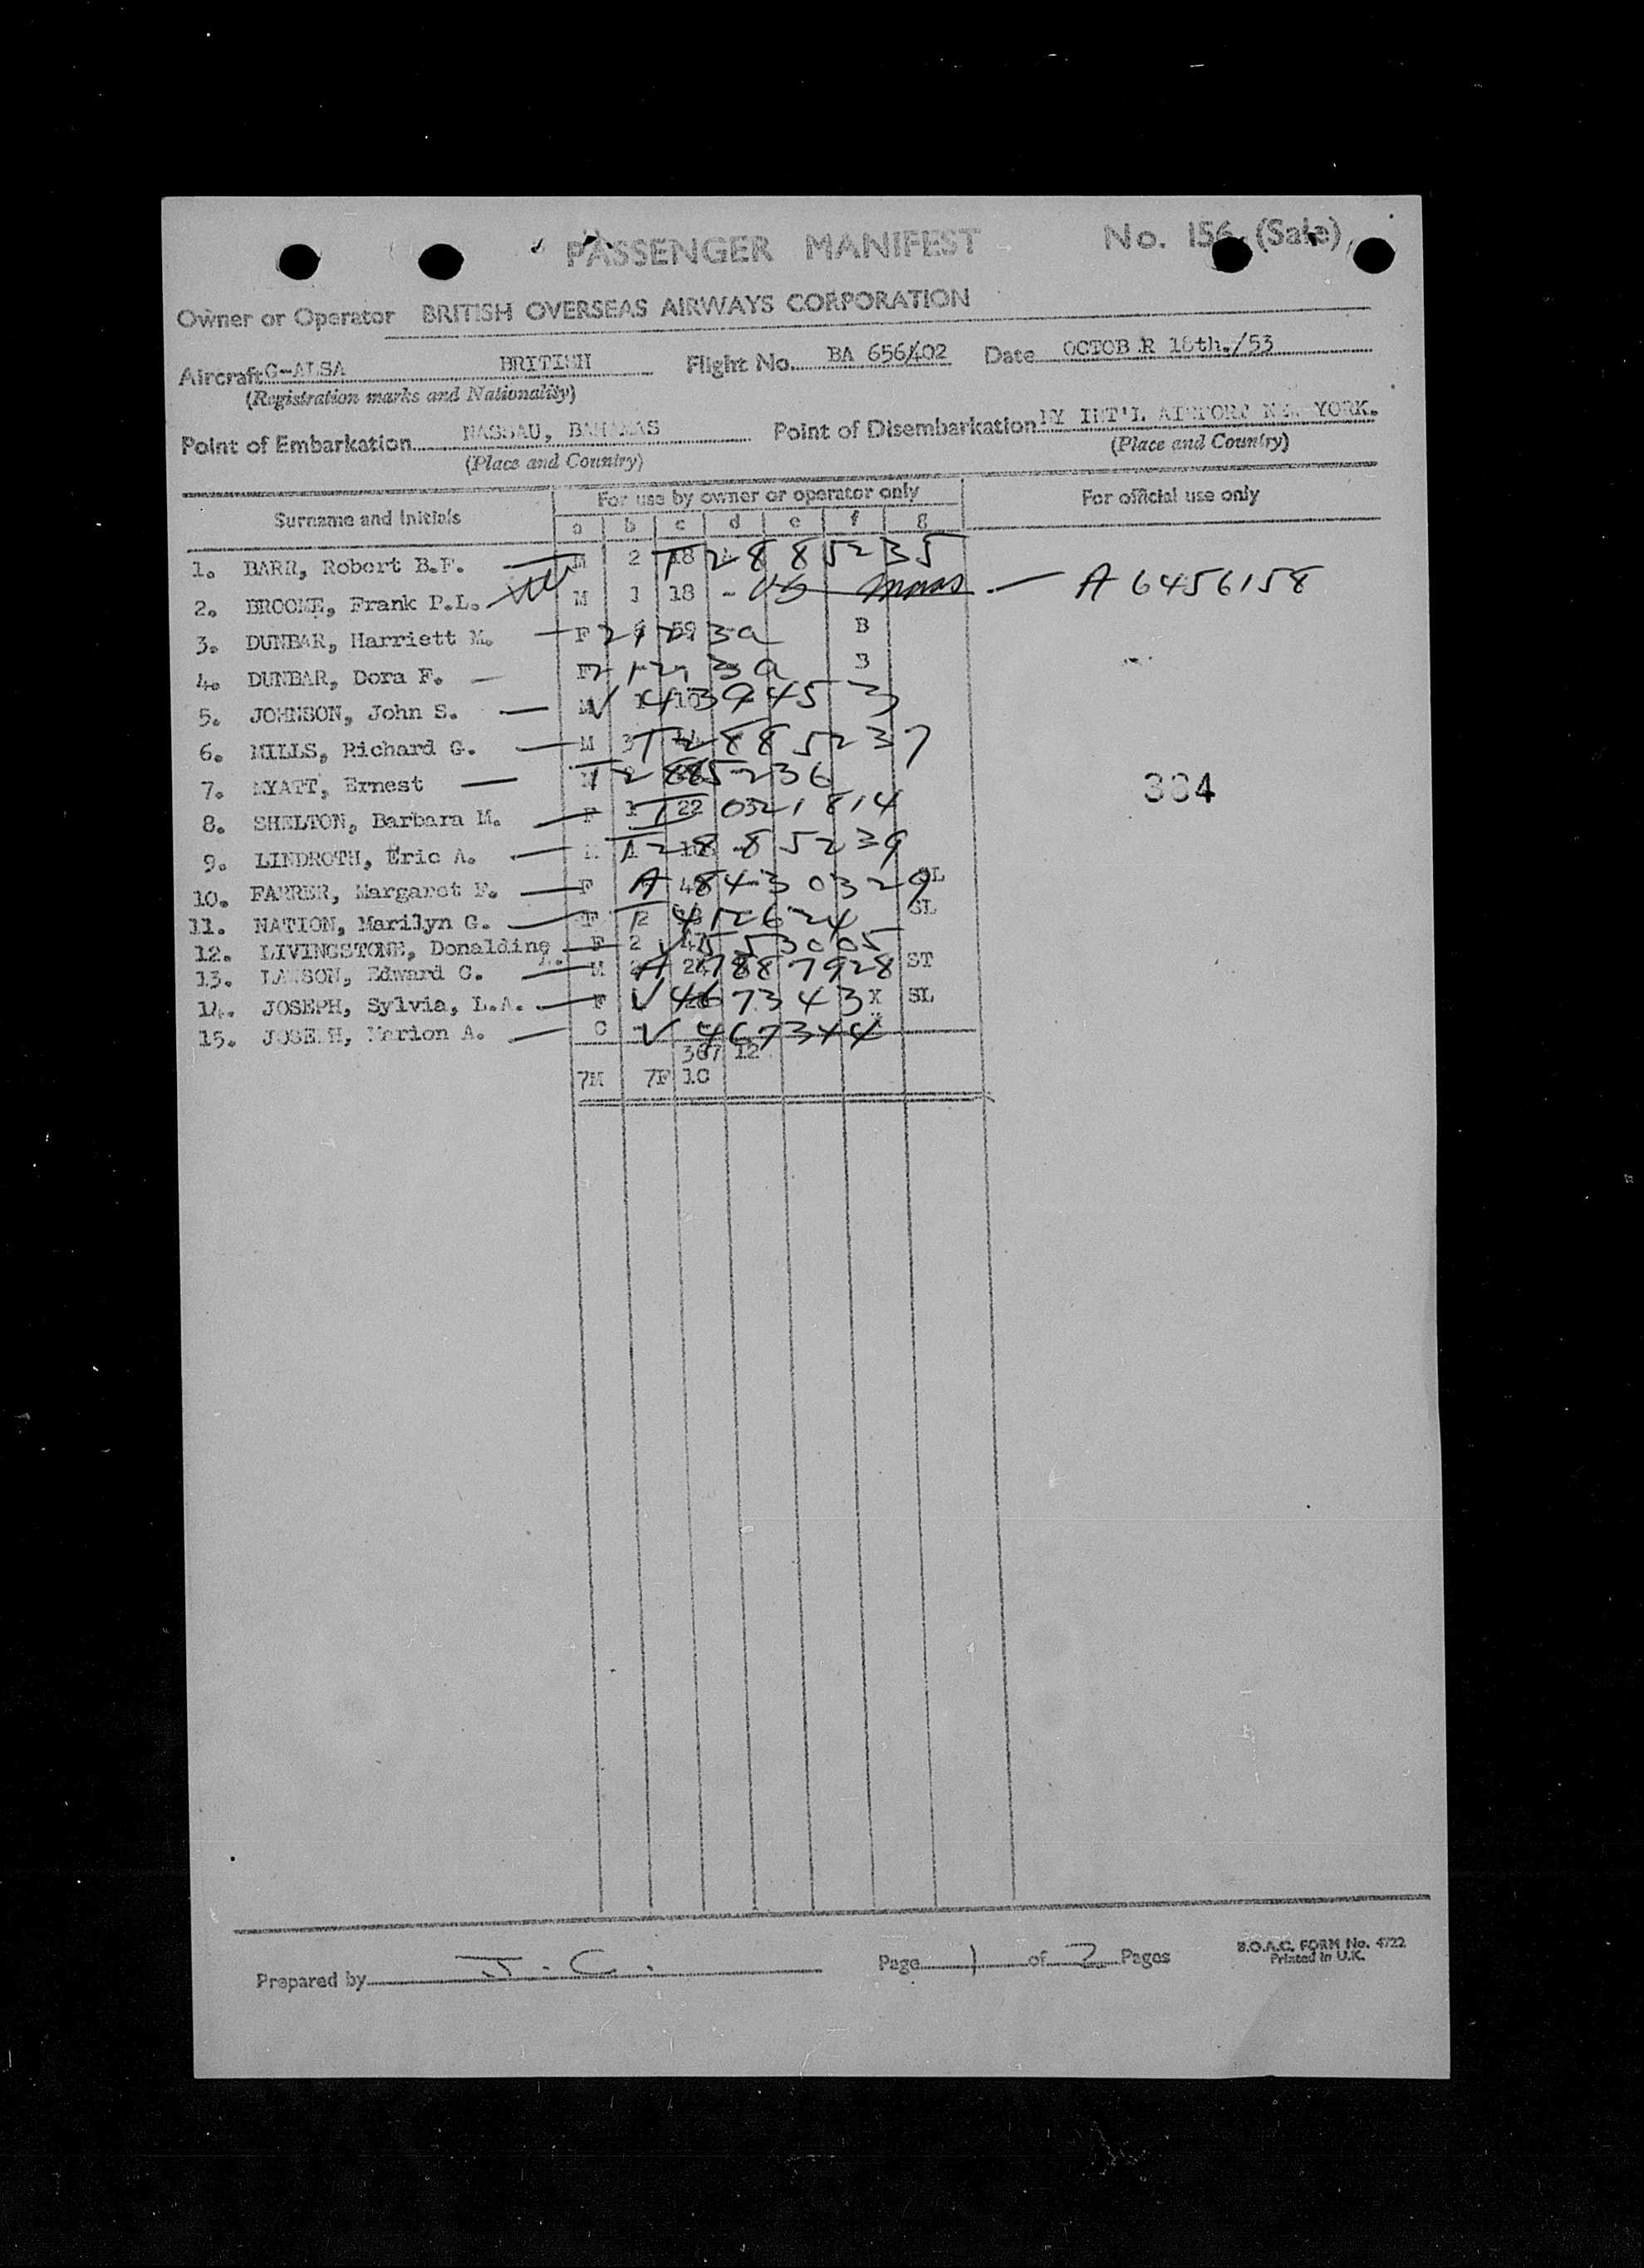 PASSENGER MANIFEST No. 156 (Sale)
Owner or Operator BRITISH OVERSEAS AIRWAYS CORPORATION
Aircraft G-ALSA BRITISH Flight No. BA 656/402 Date OCTOB R 18th./53
(Registration marks and Nationality)
Point of Embarkation NASSAU, BAHAMAS Point of Disembarkation NY INT'L AIRPORT NEW YORK.
(Place and Country) (Place and Country)
For use by owner or operator only For official use only
Surname and Initials
a b c d e f g
1. BARR, Robert B.F. — M 2 18 T2885235
2. BROOME, Frank P.L. M 1 18 - — A6456158
3. DUNBAR, Harriett M. — F 59 2123a B
4. DUNBAR, Dora F. — F 2123a B
5. JOHNSON, John S. — M V439453
6. MILLS, Richard G. — M 3 T2885237
7. MYATT, Ernest — M T2885236
384
8. SHELTON, Barbara M. — F 1 22 T0321814
9. LINDROTH, Eric A. — M 1 T2885239
10. FARRER, Margaret F. — F A8430329 SL
11. NATION, Marilyn G. — F 2 T412624 SL
12. LIVINGSTONE, Donaldine — F 2 47 V553005
13. LAWSON, Edward C. — M A7887928 ST
14. JOSEPH, Sylvia, L.A. — F V467343 X SL
15. JOSEPH, Marion A. — C V467344
367 12
7M 7F 1C
Prepared by J.C. Page 1 of 2 Pages
B.O.A.C. FORM No. 4722
Printed in U.K.